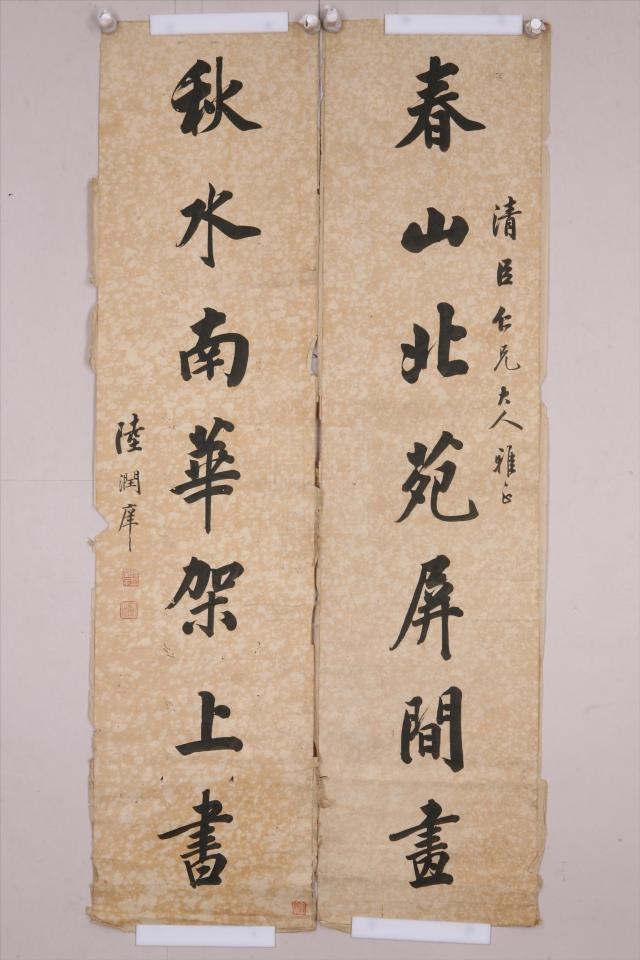 清臣仁兄大人雅正
春山北苑屏間畫
秋水南華架上書
陸潤庠